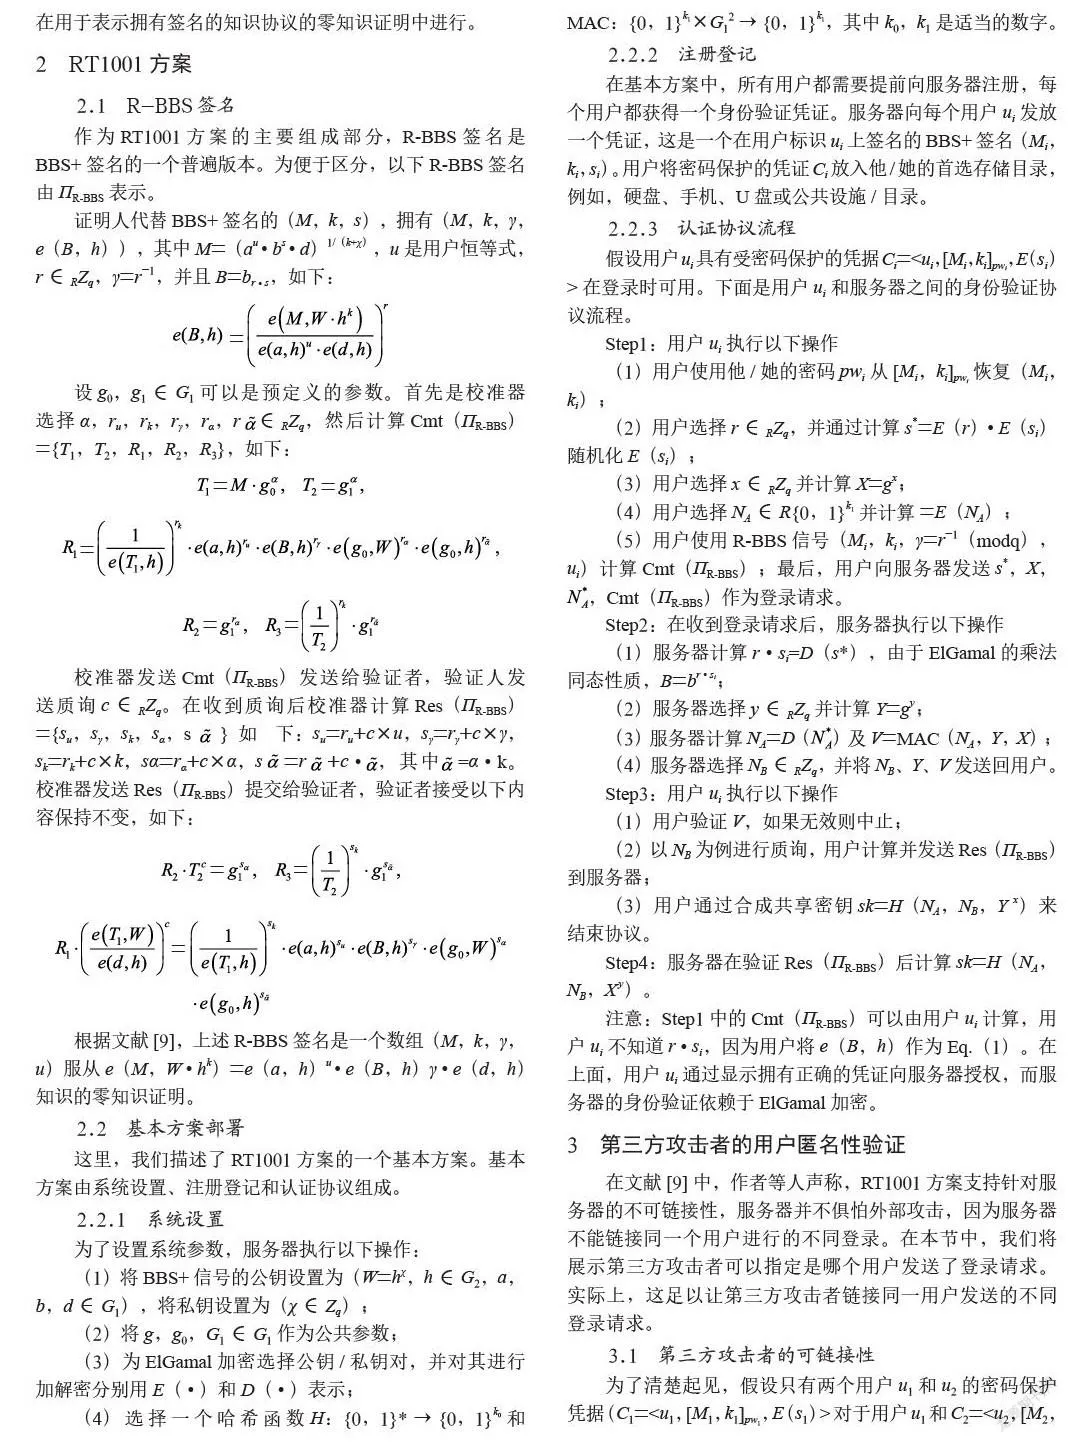 在用于表示拥有签名的知识协议的零知识证明中进行。
2 RT1001 方案
2.1 R-BBS 签名
作为 RT1001 方案的主要组成部分，R-BBS 签名是
BBS+ 签名的一个普遍版本。为便于区分，以下 R-BBS 签名
由 Π_{R-BBS} 表示。
证明人代替 BBS+ 签名的（M，k，s），拥有（M，k，γ，
e（B，h）），其中 M=（a^u•b^s•d）^{1/（k+χ）}，u 是用户恒等式，
r ∈ _RZ_q，γ=r^{-1}，并且 B=b_{r•s}，如下：
e(B,h) = (e(M,W·h^k) / (e(a,h)^u·e(d,h)))^r
设 g_0，g_1 ∈ G_1 可以是预定义的参数。首先是校准器
选择 α，r_u，r_k，r_γ，r_α，r α̃ ∈ _RZ_q，然后计算 Cmt（Π_{R-BBS}）
={T_1，T_2，R_1，R_2，R_3}，如下：
T_1 = M·g_0^α， T_2 = g_1^α，
R_1 = (1 / e(T_1,h))^{r_k}·e(a,h)^{r_u}·e(B,h)^{r_γ}·e(g_0,W)^{r_α}·e(g_0,h)^{r_α̃}，
R_2 = g_1^{r_α}， R_3 = (1 / T_2)^{r_k}·g_1^{r_α̃}
校准器发送 Cmt（Π_{R-BBS}）发送给验证者，验证人发
送质询 c ∈ _RZ_q。在收到质询后校准器计算 Res（Π_{R-BBS}）
={s_u，s_γ，s_k，s_α，s α̃ } 如 下：s_u=r_u+c×u，s_γ=r_γ+c×γ，
s_k=r_k+c×k，sα=r_α+c×α，s α̃ =r α̃ +c•α̃，其中 α̃ =α•k。
校准器发送 Res（Π_{R-BBS}）提交给验证者，验证者接受以下内
容保持不变，如下：
R_2·T_2^c = g_1^{s_α}， R_3 = (1 / T_2)^{s_k}·g_1^{s_α̃}，
R_1·(e(T_1,W) / e(d,h))^c = (1 / e(T_1,h))^{s_k}·e(a,h)^{s_u}·e(B,h)^{s_γ}·e(g_0,W)^{s_α}
·e(g_0,h)^{s_α̃}
根据文献 [9]，上述 R-BBS 签名是一个数组（M，k，γ，
u）服从 e（M，W•h^k）=e（a，h）^u•e（B，h）γ•e（d，h）
知识的零知识证明。
2.2 基本方案部署
这里，我们描述了 RT1001 方案的一个基本方案。基本
方案由系统设置、注册登记和认证协议组成。
2.2.1 系统设置
为了设置系统参数，服务器执行以下操作：
（1）将 BBS+ 信号的公钥设置为（W=h^χ，h ∈ G_2，a，
b，d ∈ G_1），将私钥设置为（χ ∈ Z_q）；
（2）将 g，g_0，G_1 ∈ G_1 作为公共参数；
（3）为 ElGamal 加密选择公钥 / 私钥对，并对其进行
加解密分别用 E（•）和 D（•）表示；
（4）选择一个哈希函数 H：{0，1}* → {0，1}^{k_0} 和
MAC：{0，1}^{k_1}×G_1^2 → {0，1}^{k_1}，其中 k_0，k_1 是适当的数字。
2.2.2 注册登记
在基本方案中，所有用户都需要提前向服务器注册，每
个用户都获得一个身份验证凭证。服务器向每个用户 u_i 发放
一个凭证，这是一个在用户标识 u_i 上签名的 BBS+ 签名（M_i，
k_i，s_i）。用户将密码保护的凭证 C_i 放入他 / 她的首选存储目录，
例如，硬盘、手机、U 盘或公共设施 / 目录。
2.2.3 认证协议流程
假设用户 u_i 具有受密码保护的凭据 C_i=<u_i，[M_i，k_i]_{pw_i}，E（s_i）
> 在登录时可用。下面是用户 u_i 和服务器之间的身份验证协
议流程。
Step1：用户 u_i 执行以下操作
（1）用户使用他 / 她的密码 pw_i 从 [M_i，k_i]_{pw_i} 恢复（M_i，
k_i）；
（2）用户选择 r ∈ _RZ_q，并通过计算 s^*=E（r）•E（s_i）
随机化 E（s_i）；
（3）用户选择 x ∈ _RZ_q 并计算 X=g^x；
（4）用户选择 N_A ∈ R{0，1}^{k_1} 并计算 =E（N_A）；
（5）用户使用 R-BBS 信号（M_i，k_i，γ=r^{-1}（modq），
u_i）计算 Cmt（Π_{R-BBS}）；最后，用户向服务器发送 s^*，X，
N_A^*，Cmt（Π_{R-BBS}）作为登录请求。
Step2：在收到登录请求后，服务器执行以下操作
（1）服务器计算 r•s_i=D（s*），由于 ElGamal 的乘法
同态性质，B=b^{r•s_i}；
（2）服务器选择 y ∈ _RZ_q 并计算 Y=g^y；
（3）服务器计算 N_A=D（N_A^*）及 V=MAC（N_A，Y，X）；
（4）服务器选择 N_B ∈ _RZ_q，并将 N_B、Y、V 发送回用户。
Step3：用户 u_i 执行以下操作
（1）用户验证 V，如果无效则中止；
（2）以 N_B 为例进行质询，用户计算并发送 Res（Π_{R-BBS}）
到服务器；
（3）用户通过合成共享密钥 sk=H（N_A，N_B，Y^x）来
结束协议。
Step4：服务器在验证 Res（Π_{R-BBS}）后计算 sk=H（N_A，
N_B，X^y）。
注意：Step1 中的 Cmt（Π_{R-BBS}）可以由用户 u_i 计算，用
户 u_i 不知道 r•s_i，因为用户将 e（B，h）作为 Eq.（1）。在
上面，用户 u_i 通过显示拥有正确的凭证向服务器授权，而服
务器的身份验证依赖于 ElGamal 加密。
3 第三方攻击者的用户匿名性验证
在文献 [9] 中，作者等人声称，RT1001 方案支持针对服
务器的不可链接性，服务器并不俱怕外部攻击，因为服务器
不能链接同一个用户进行的不同登录。在本节中，我们将
展示第三方攻击者可以指定是哪个用户发送了登录请求。
实际上，这足以让第三方攻击者链接同一用户发送的不同
登录请求。
3.1 第三方攻击者的可链接性
为了清楚起见，假设只有两个用户 u_1 和 u_2 的密码保护
凭据（C_1=<u_1，[M_1，k_1]_{pw_1}，E（s_1）> 对于用户 u_1 和 C_2=<u_2，[M_2，